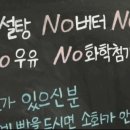 설탕 No버터 N
o 우유 No 화학첨기
가 있으신분
빵을 드시면 소화가 안